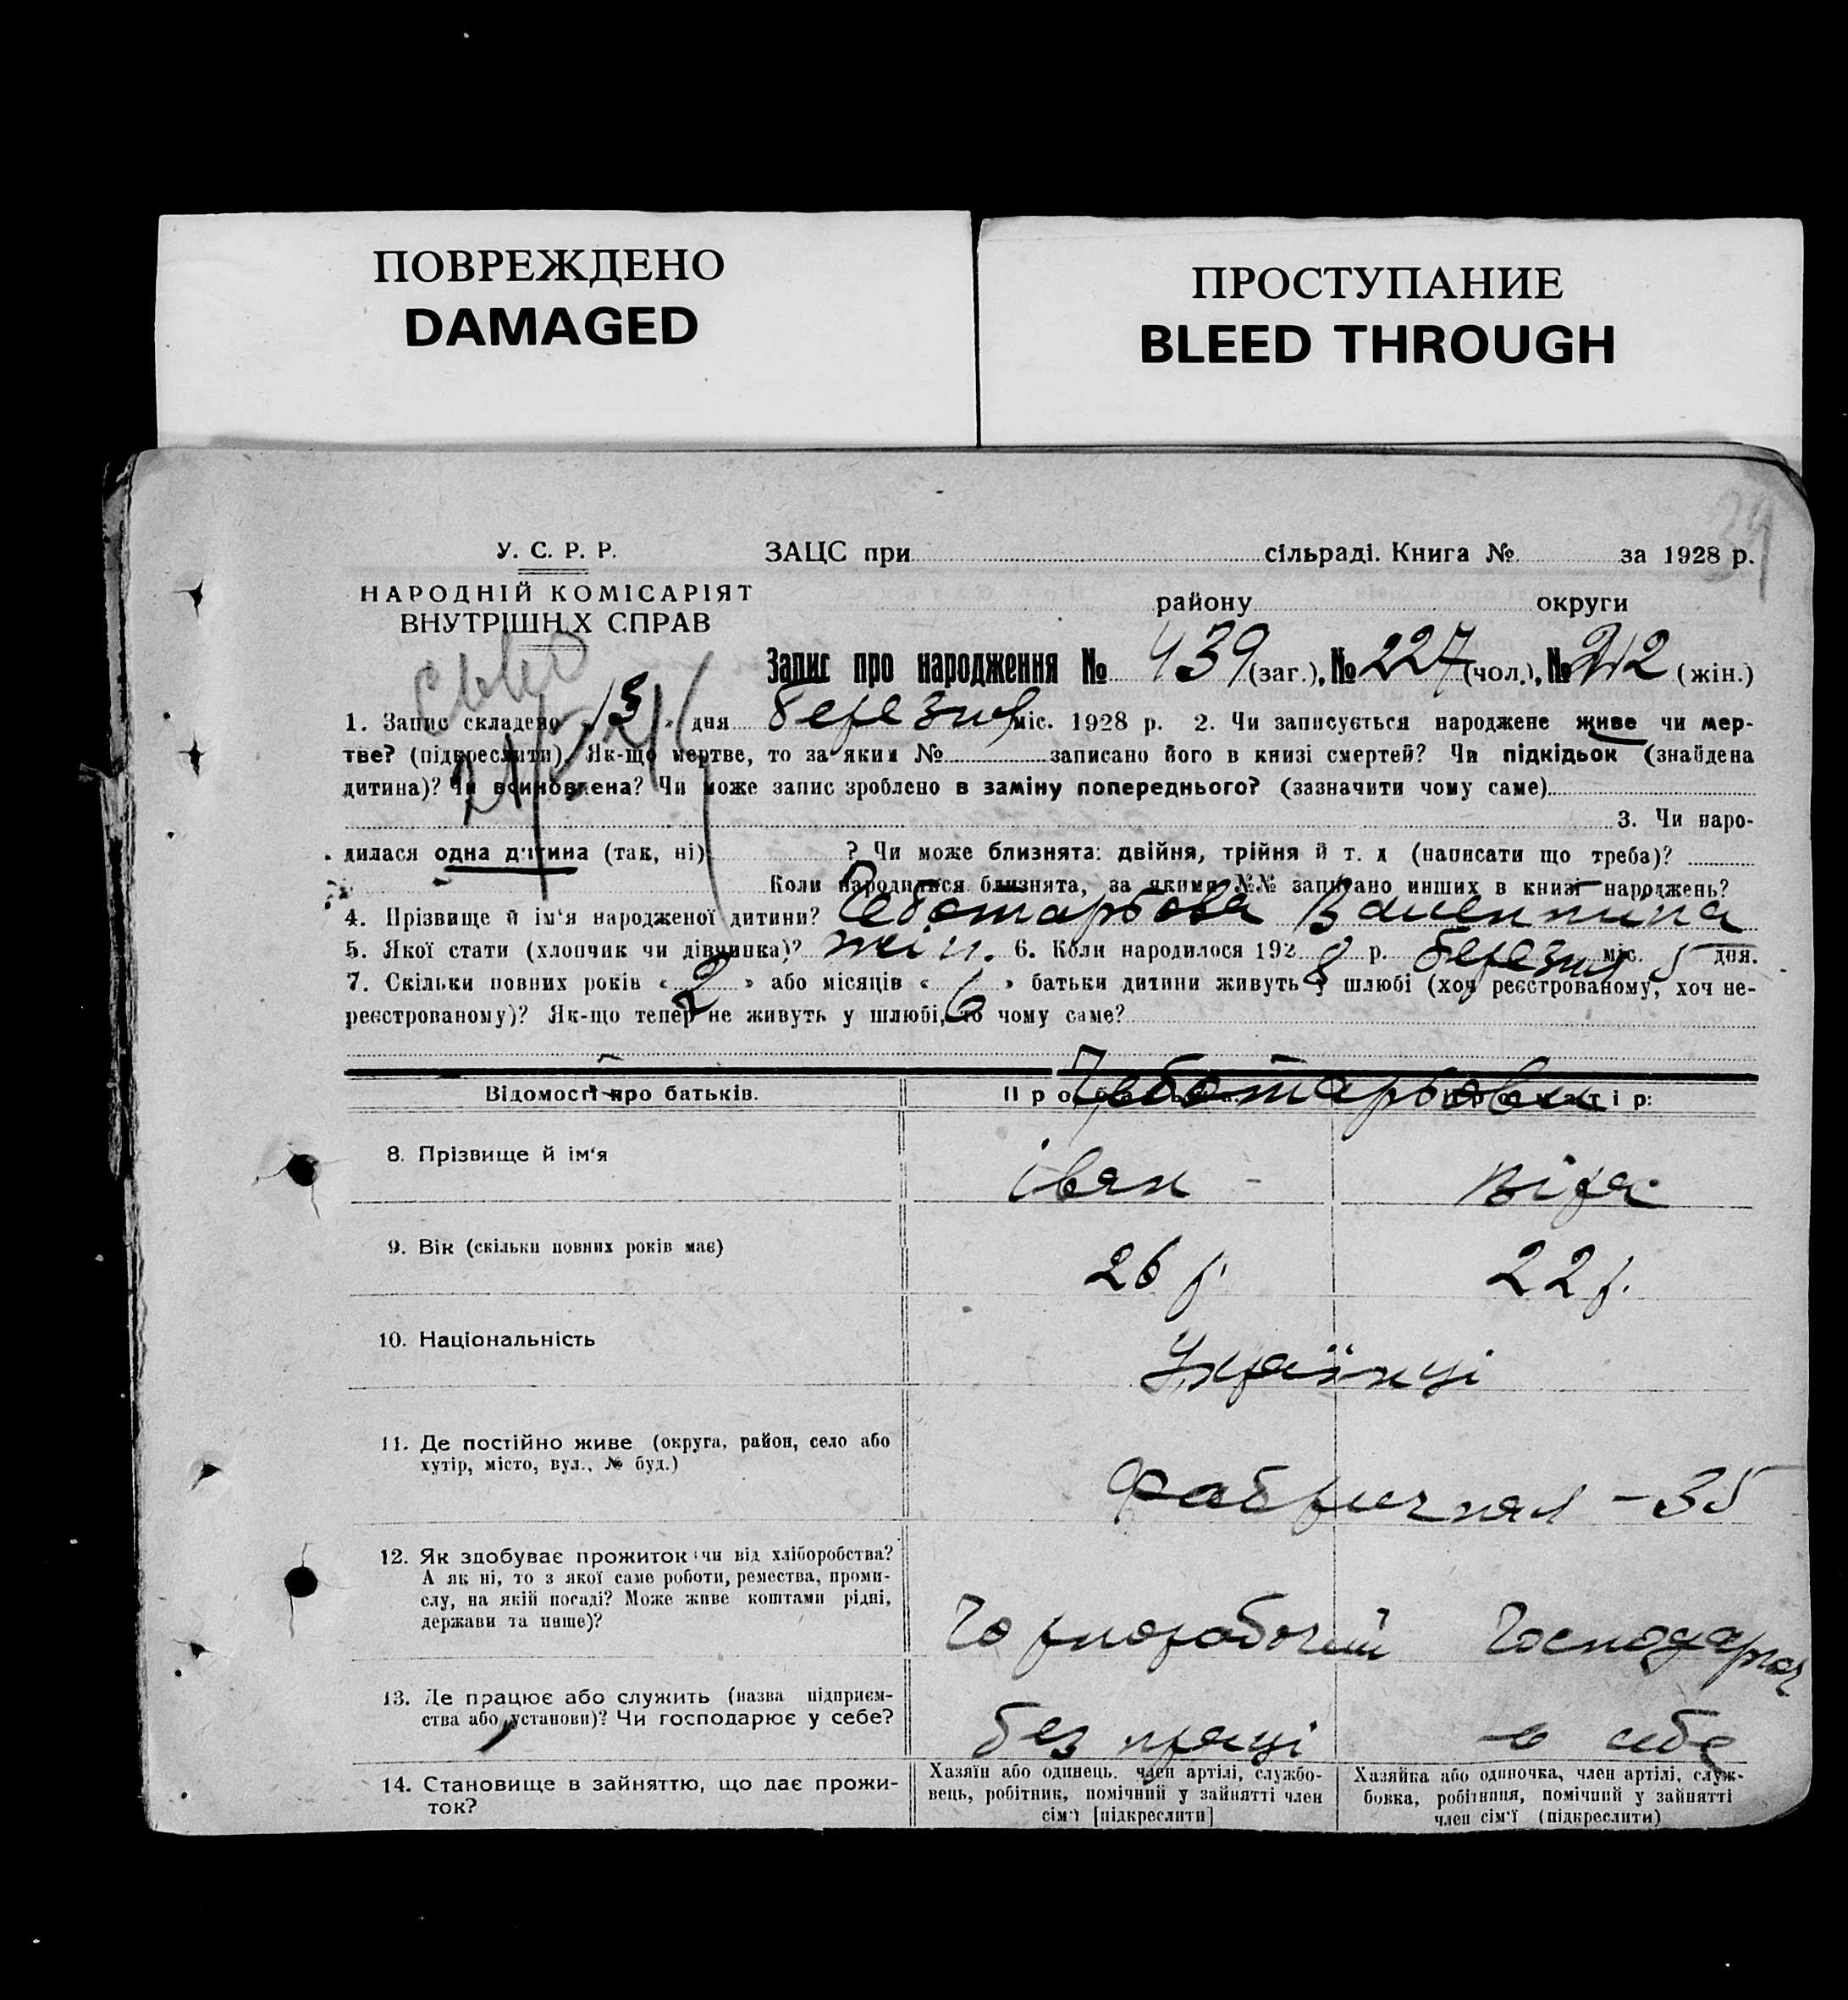 ПОВРЕЖДЕНО
DAMAGED
ПРОСТУПАНИЕ
BLEED THROUGH
39
У. С. Р. Р.
НАРОДНІЙ КОМІСАРІЯТ
ВНУТРІШН Х СПРАВ
ЗАЦС при сільраді. Книга № за 1928 р.
району округи
Запис про народження № 439 (заг.), № 227 (чол.), № 212 (жін.)
1. Запис складено « 13 » дня березня міс. 1928 р. 2. Чи записується народжене живе чи мер-
тве? (підкреслити). Як-що мертве, то за яким № записано його в книзі смертей? Чи підкідьок (знайдена
дитина)? Чи всиновлена? Чи може запис зроблено в заміну попереднього? (зазначити чому саме)
3. Чи наро-
дилася одна дитина (так, ні) ? Чи може близнята: двійня, трійня й т. д (написати що треба)?
Коли народилися близнята, за якими №№ записано инших в книзі народжень?
4. Прізвище й ім'я народженої дитини? Чеботарьова Валентина
5. Якої стати (хлопчик чи дівчинка)? жін. 6. Коли народилося 192 8 р. березня міс. 5 дня.
7. Скільки повних років « 2 » або місяців « 6 » батьки дитини живуть у шлюбі (хоч реєстрованому, хоч не-
реєстрованому)? Як-що тепер не живуть у шлюбі, то чому саме?
Відомості про батьків.
Чеботарьови
8. Прізвище й ім'я Іван - Віра
9. Вік (скільки повних років має) 26 р. 22 р.
10. Національність Українці
11. Де постійно живе (округа, район, село або
хутір, місто, вул., № буд.)
Фабричная - 35
12. Як здобуває прожиток чи від хліборобства?
А як ні, то з якої саме роботи, ремества, проми-
слу, на якій посаді? Може живе коштами рідні,
держави та инше)?
Чорноробочий Господарює
13. Де працює або служить (назва підприєм-
ства або установи)? Чи господарює у себе?
без праці в себе
14. Становище в зайняттю, що дає прожи-
ток?
Хазяїн або одинець. член артілі, службо-
вець, робітник, помічний у зайнятті член
сім'ї [підкреслити]
Хазяйка або одиночка, член артілі, служ-
бовка, робітниця, помічний у зайнятті
член сім'ї (підкреслити)